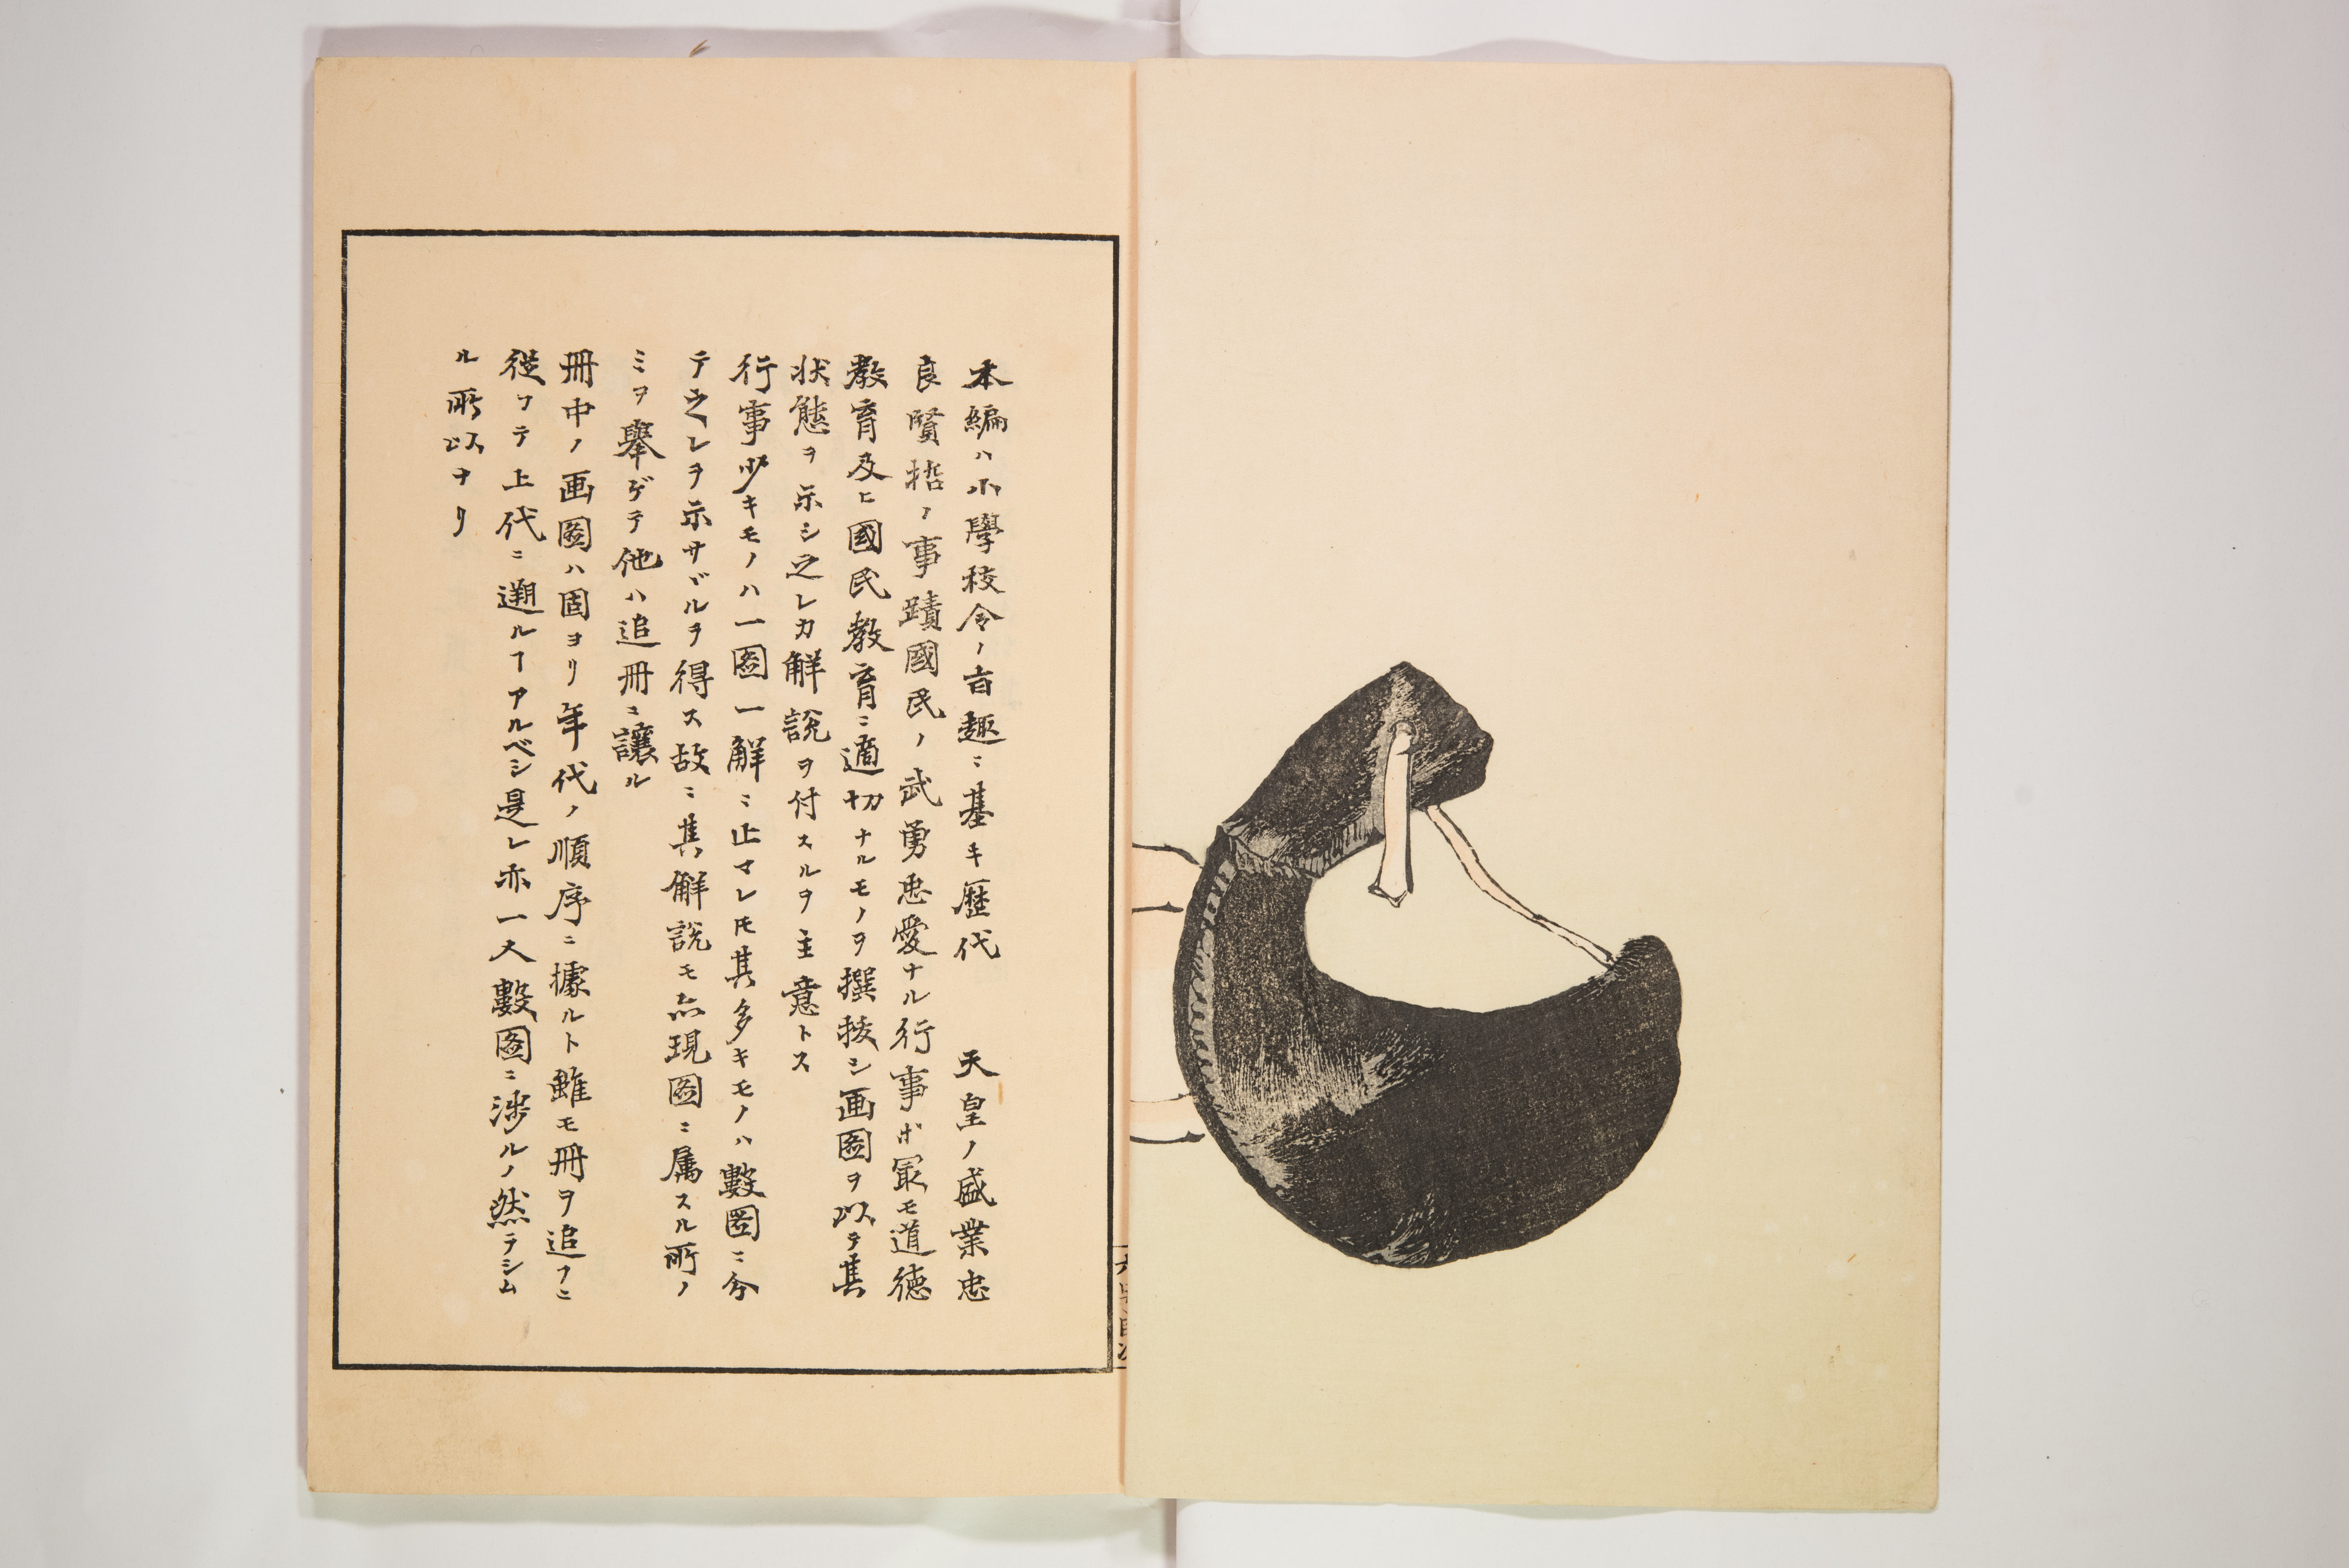 本編ハ小學校令ノ旨趣ニ基キ歴代　天皇ノ盛業忠
良賢哲ノ事蹟國民ノ武勇忠愛ナル行事ボ最モ道徳
教育及ヒ國民教育ニ適切ナルモノヲ撰拔シ画圖ヲ以テ其
状態ヲ示シ之レカ解説ヲ付スルヲ主意トス
行事少キモノハ一圖一解ニ止マレ𪜈其多キモノハ數圖ニ分
テ之レヲ示サヾルヲ得ス故ニ其解説モ亦現圖ニ属スル所ノ
ミヲ舉ゲテ他ハ追冊ニ讓ル
冊中ノ画圖ハ固ヨリ年代ノ順序ニ據ルト雖モ冊ヲ追フニ
從フテ上代ニ遡ルヿアルベシ是レ亦一人數圖ニ渉ルノ然ラシム
ル所以ナリ